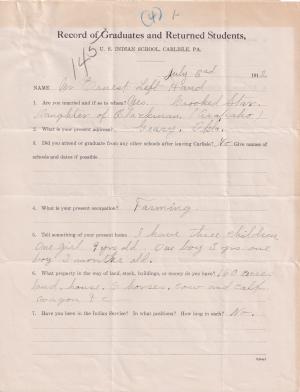 (4)
145
Record of Graduates and Returned Students,
U. S. INDIAN SCHOOL, CARLISLE, PA.
July 3rd 191
NAME Mr Earnest Left Hand
1. Are you married and if so to whom? Yes. Crooked Star.
daughter of Blackman (Arapaho.)
2. What is your present address? Geary, Okla.
3. Did you attend or graduate from any other schools after leaving Carlisle? No Give names of
schools and dates if possible.
4. What is your present occupation? Farming
5. Tell something of your present home. I have three children
One girl 9 yrs old. One boy 3 yrs. one
boy 2 months old.
6. What property in the way of land, stock, buildings, or money do you have? 160 acres
land, house, 3 horses, cow and calf.
wagon & c.
7. Have you been in the Indian Service? In what positions? How long in each? No.